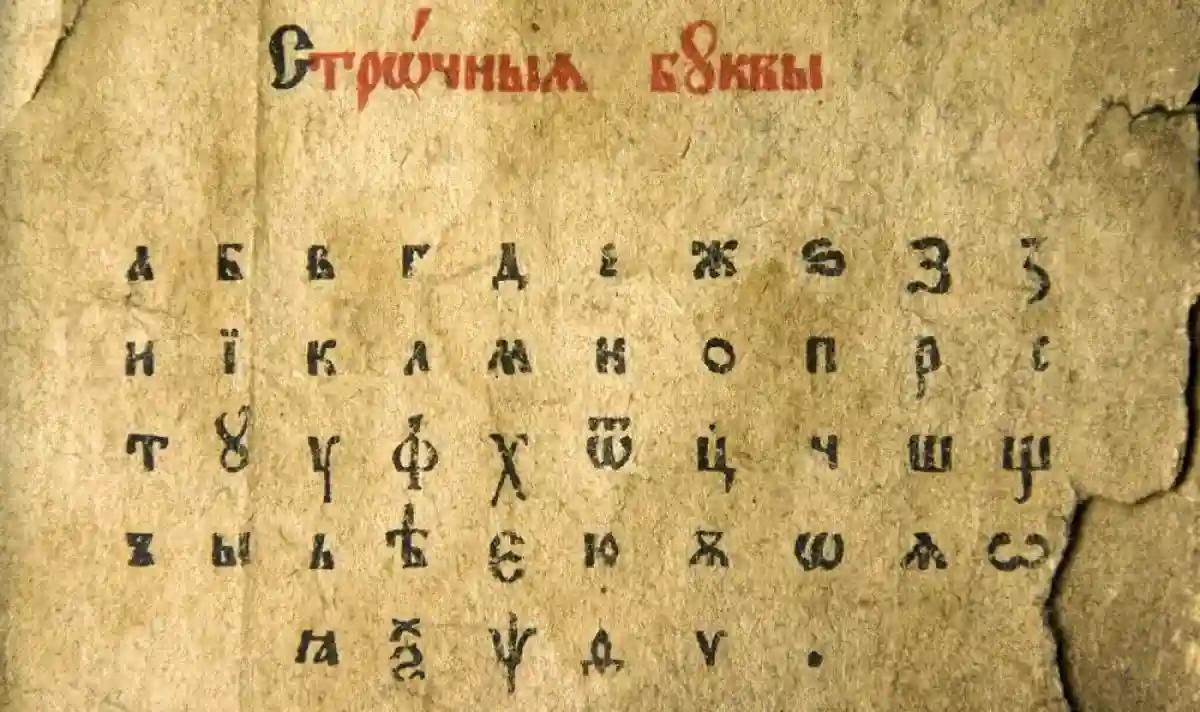 Стрѡ́чныѧ бꙋквы
а б в г д е ж ѕ з ꙁ
и ї к л м н о п р с
т ꙋ у ф х ѿ ц ч ш щ
ъ ы ь ѣ є ю ѫ ѡ ѧ ꙍ
ꙗ ѯ ѱ ѳ ѵ .